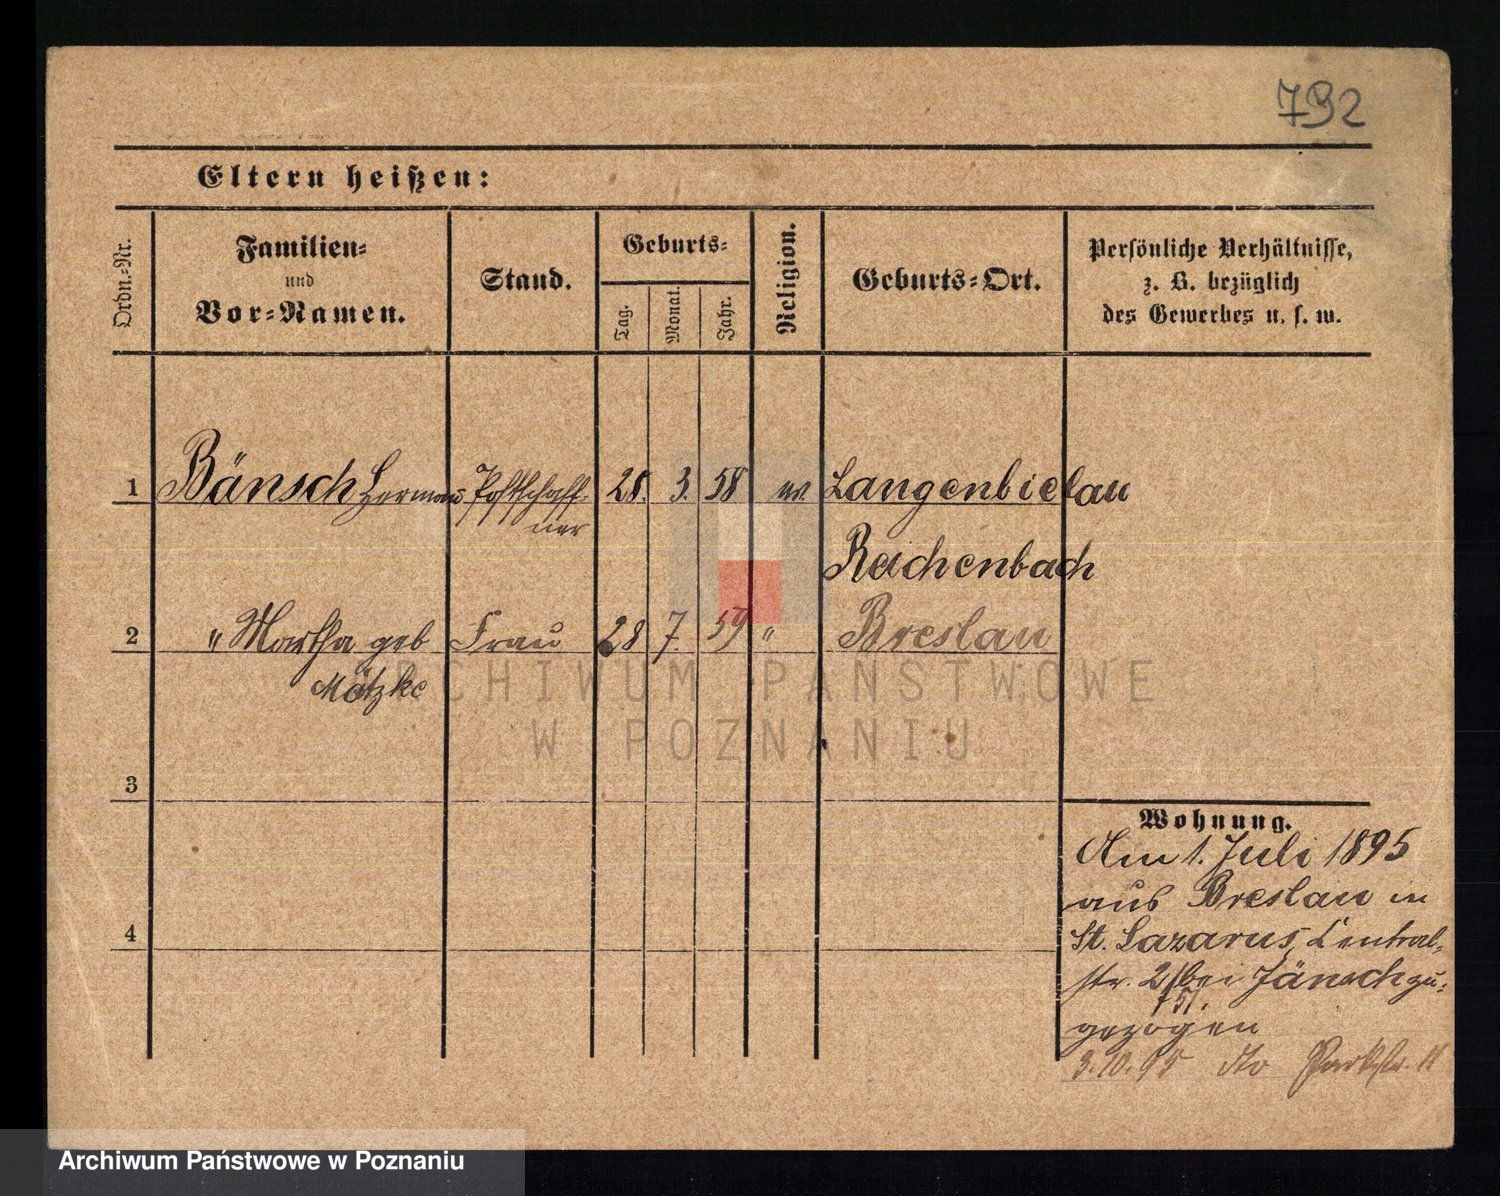 792
Eltern heißen:
Ordn.-Nr.
Familien-
und
Vor-Namen.
Stand.
Geburts-
Tag.
Monat.
Jahr.
Religion.
Geburts-Ort.
Persönliche Verhältnisse,
z. B. bezüglich
des Gewerbes u. s. w.
1 Bänsch Hermann Postschaff- 28. 3. 58 ev. Langenbielau
ner
Reichenbach
2 " Martha geb Frau 28 7. 59 " Breslau
Mätzke
3
Wohnung.
Am 1. Juli 1895
aus Breslau in
4
St. Lazarus, Central-
str. 2 bei Jänsch zu-
gezogen
3.10.95 Parkstr. 11
ARCHIWUM PAŃSTWOWE
W POZNANIU
Archiwum Państwowe w Poznaniu